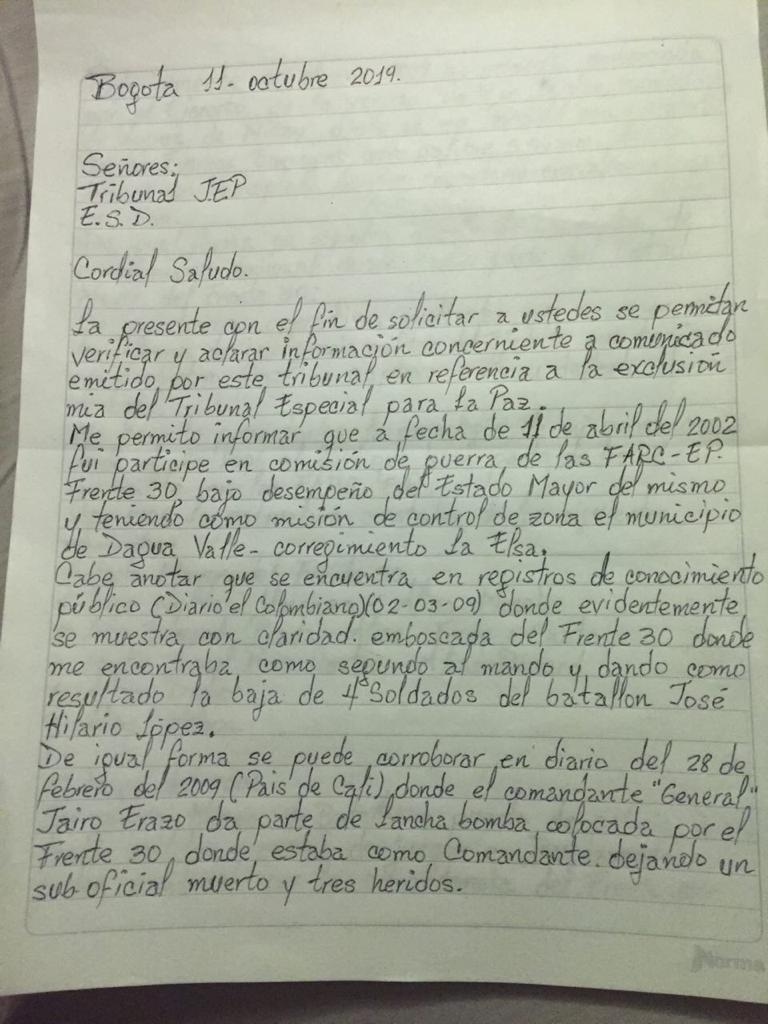 Bogota 11- octubre 2019.
Señores:
Tribunal JEP
E.S.D.
Cordial Saludo.
La presente con el fin de solicitar a ustedes se permitan
verificar y aclarar información concerniente a comunicado
emitido por este tribunal en referencia a la exclusión
mia del Tribunal Especial para la Paz.
Me permito informar que a fecha de 11 de abril del 2002
fui participe en comisión de guerra de las FARC-EP.
Frente 30, bajo desempeño del Estado Mayor del mismo
y teniendo como misión de control de zona el municipio
de Dagua Valle- corregimiento la Elsa.
Cabe anotar que se encuentra en registros de conocimiento
público (Diario el Colombiano)(02-03-09) donde evidentemente
se muestra con claridad. emboscada del Frente 30 donde
me encontraba como segundo al mando y dando como
resultado la baja de 4 Soldados del batallon José
Hilario López.
De igual forma se puede corroborar en diario del 28 de
febrero del 2009 (Pais de Cali) donde el comandante "General"
Jairo Erazo da parte de lancha bomba colocada por el
Frente 30, donde estaba como Comandante. dejando un
sub oficial muerto y tres heridos.
Norma